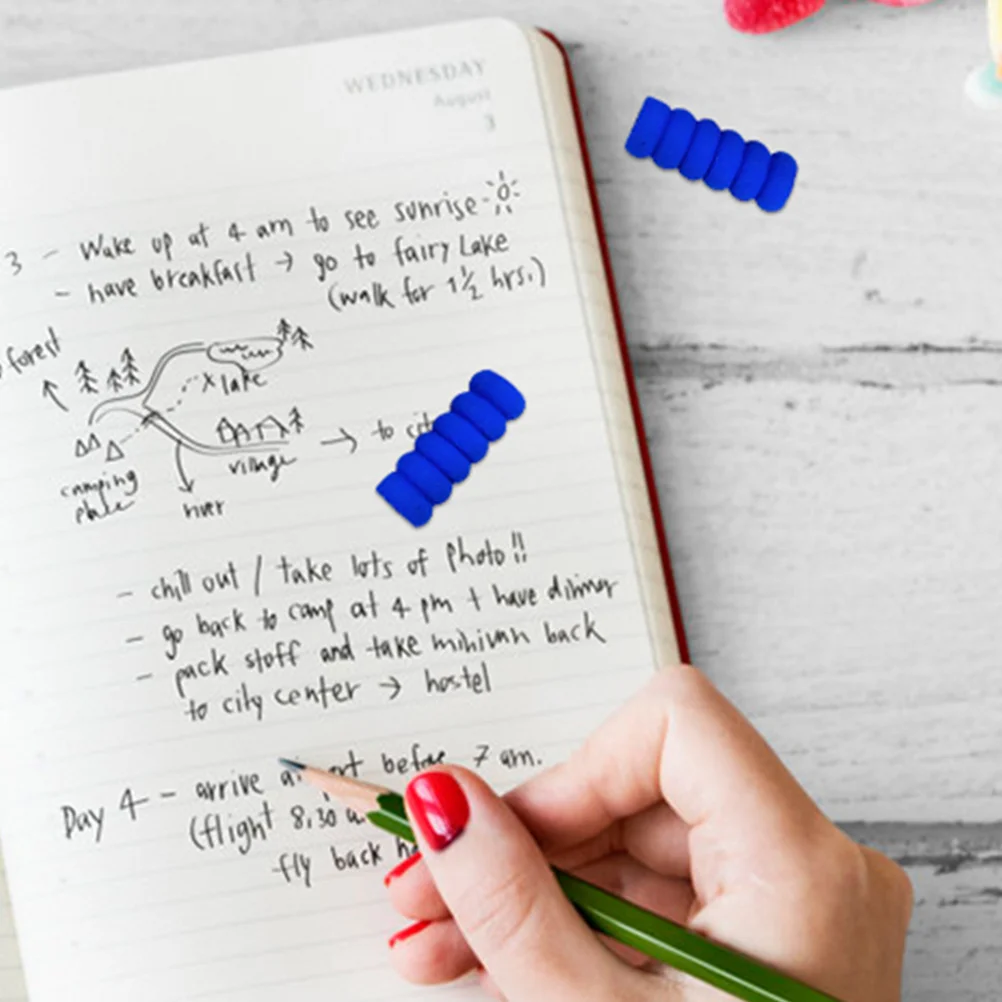 WEDNESDAY
August
3
3 - Wake up at 4 am to see sunrise
- have breakfast → go to fairy Lake
(walk for 1½ hrs.)
forest
x lake
→ to
village
camping
place
river
- chill out / take lots of photo!!
- go back to camp at 4 pm + have dinner
- pack stuff and take minivan back
to city center → hostel
Day 4 - arrive before 7 am.
(flight 8.30
fly back